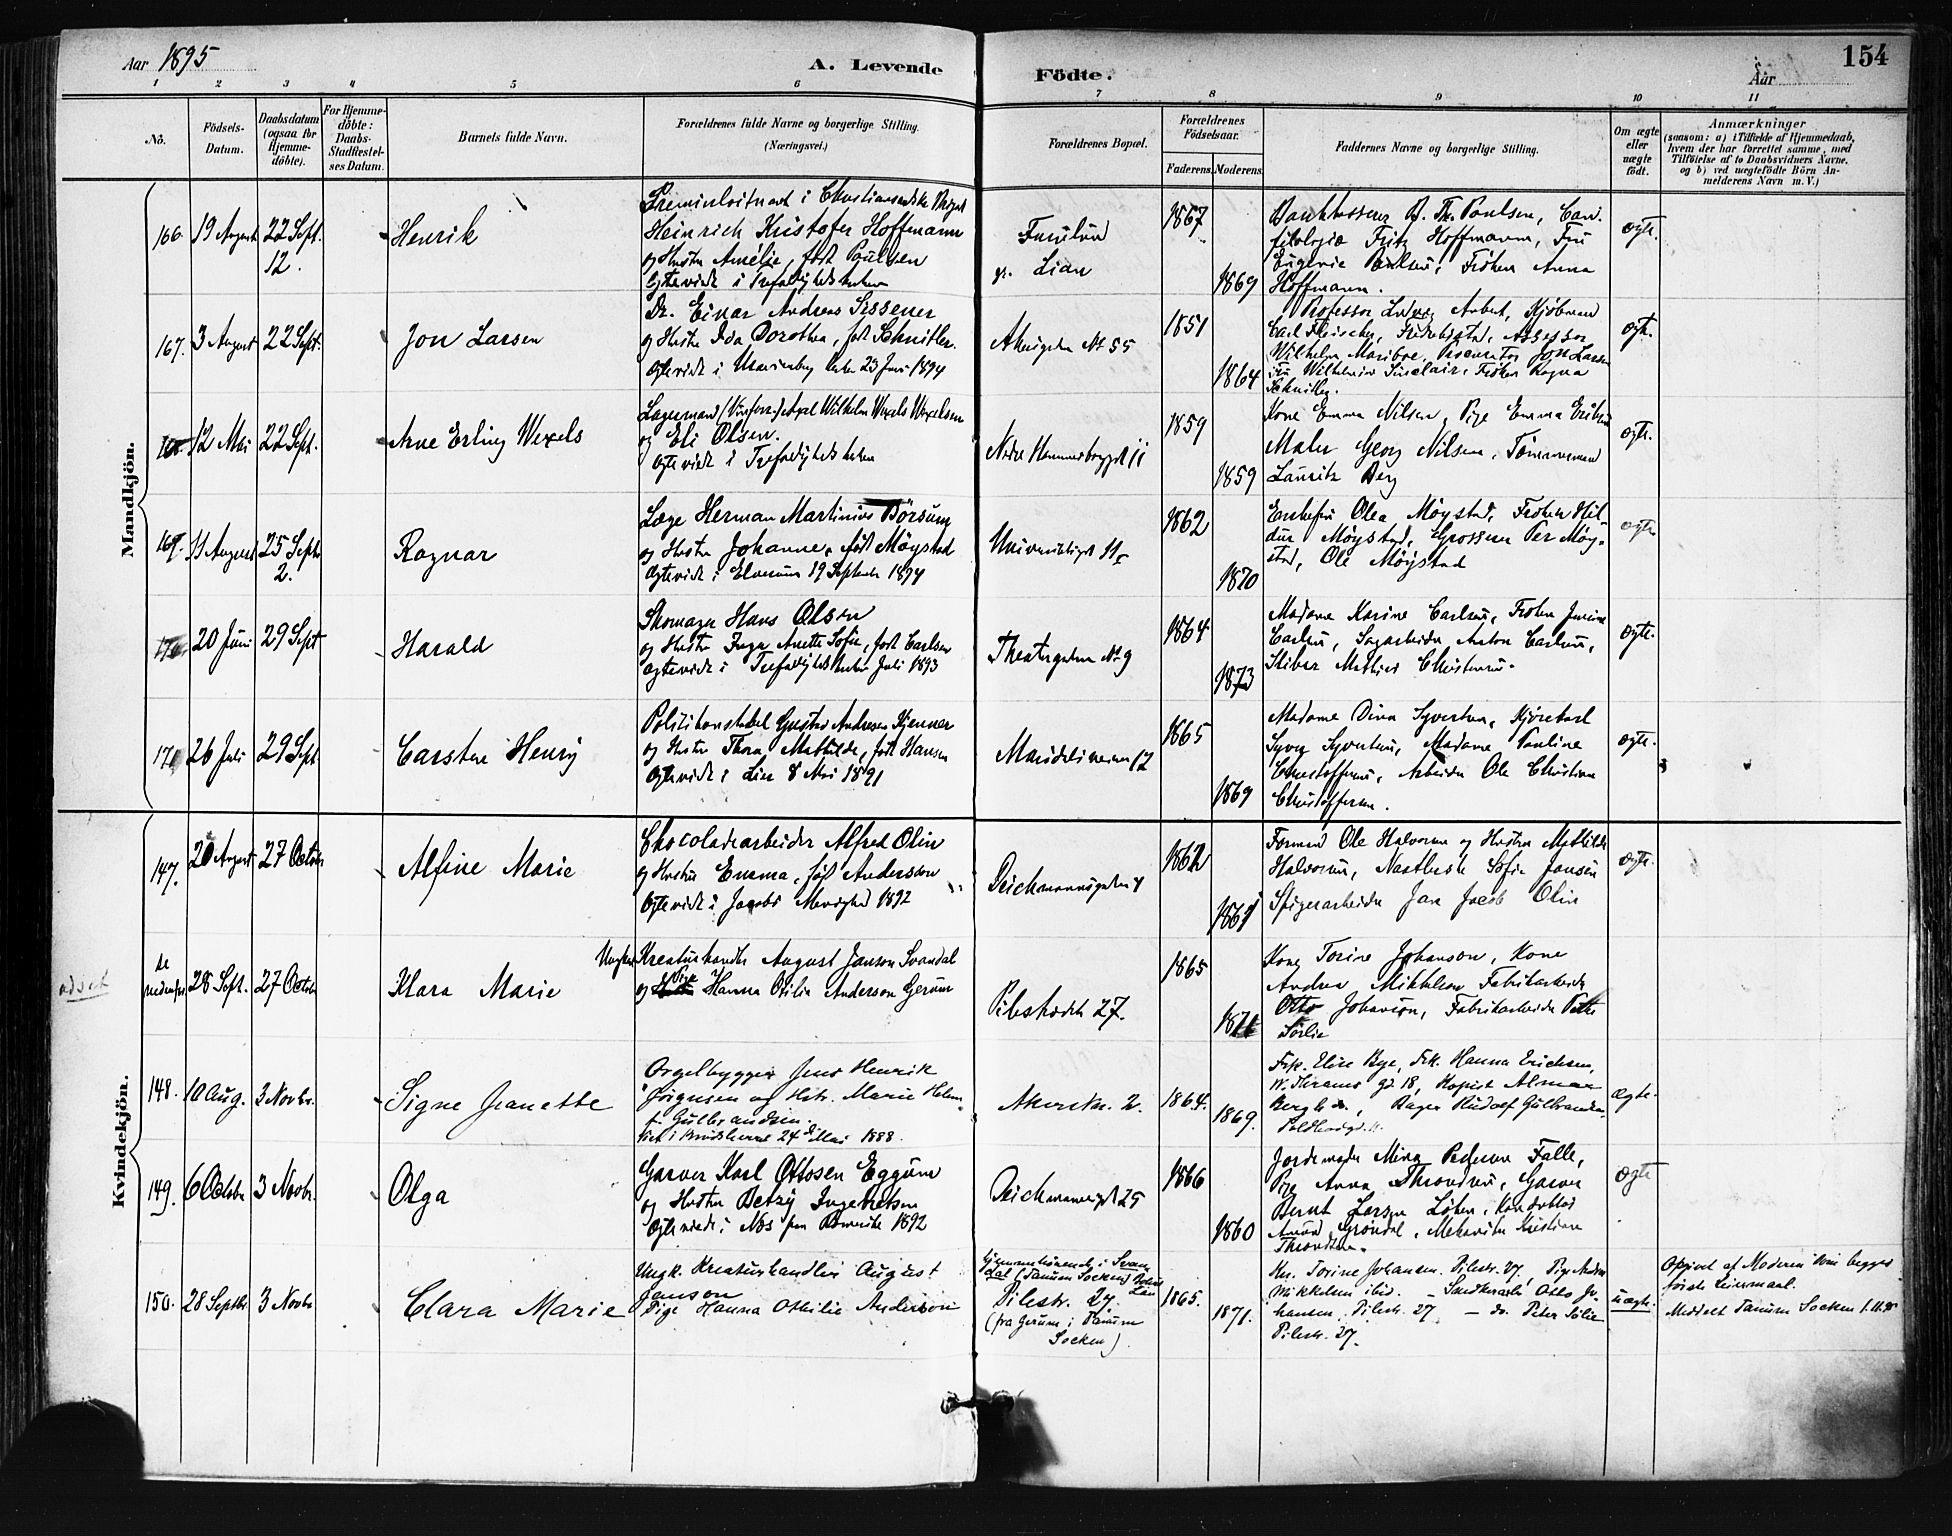 Aar 1895
A. Levende
Födte.
Aar
154
1 2 3 4 5 6 7 8 9 10 11
No.
Födsels-
Datum.
Daabsdatum
(ogsaa for
Hjemme-
döbte).
For Hjemme-
döbte:
Daabs-
Stadfæstel-
ses Datum.
Barnets fulde Navn.
Forældrenes fulde Navne og borgerlige Stilling.
(Næringsvei.)
Forældrenes Bopæl.
Forældrenes
Födselsaar.
Faderens.
Moderens.
Faddernes Navne og borgerlige Stilling.
Om ægte
eller
uægte
födt.
Anmærkninger
(saasom: a) i Tilfælde af Hjemmedaab,
hvem der har forrettet samme, med
Tilföielse af to Daabsvidners Navne.
og b) ved uægtefödte Börn An-
melderens Navn m. V.)
Mandkjön.
166. 19 August 22 Sept.
12.
Henrik
Premierlöitnant i Christiansandske Brigad
Heinrich Kristofer Hoffmann
og Hustru Amélie, født Poulsen
Ægteviede i Trefoldighedskirken
Furulund
pr. Lian
1867
1869
Bankkasserer Th. Poulsen, Cand.
filologiæ Fritz Hoffmann, Fru
Eugenie Poulsen, Frøken Anna
Hoffmann.
ægte.
167. 3 August 22 Sept.
Jon Larsen
Dr. Einar Andreas Sissener
og Hustru Ida Dorothea, født Schnitler.
Ægteviede i 23 Juni 1894
Akersgaden No 55
1851
1864
Professor Kjöbenh
Carl Fleischer, Fredrikstad, Assessor
Wilhelm Maribo, Procurator Jon Larsen
Fru Sinclair, Frøken Ragna
Schnitler.
ægte.
12 Mai 22 Sept.
Arne Erling Wexels
Lagermand Axel Wilhelm Wexels Wexelsen
og Eli Olsen.
Ægteviede i Trefoldighedskirken
11
1859
1859
Kone Emma Nilsen, Pige Emma Eriksen
Maler Georg Nilsen, Tømmermand
Lauritz Berg
ægte.
169. 11 August 25 Septbr
2.
Ragnar
Læge Herman Martinius Börsum
og Hustru Johanne, født Möystad
Ægteviede i Elverum 19 September 1894
11
1862
1870
Enkefru Olea Möystad, Frøken Hil-
dur Möystad, Grosserer Per Möy-
stad, Ole Möystad
ægte
20 Juni 29 Sept
Harald
Skomager Hans Olsen
og Hustru Inga Anette Sofie, født Carlsen
Ægteviede i Trefoldighedskirken Juli 1893
Theatergaden No 9
1864
1873
Madame Karine Carlsen, Frøken
Carlsen, Sagarbeider Anton Carlsen,
Skriver Mathias Christensen.
ægte.
171 26 Juli 29 Sept.
Carsten Henry
Politikonstabel Gustav Andresen Kjenner
og Hustru Thora Mathilde, født Hansen
Ægteviede i Lier 8 Mai 1891
Maridalsveien 12
1865
1869
Madame Dina Syvertsen, Kjørekarl
Syver Syvertsen, Madame Pauline
Christoffersen, Arbeider Ole Christian
Christoffersen.
ægte.
Kvindekjön.
147. 20 August 27 Octobr
Alfine Marie
Chocoladearbeider Alfred Olin
og Hustru Emma, født Andersson
Ægteviede i Jacobs Menighed 1892
Deichmannsgaden 4
1862
Formand Ole Halvorsen og Hustru Mathilde
Halvorsen, Sofie Jansen
Spigerarbeider Jan Jacob Olin
ægte.
se
nedenfor 28 Sept. 27 Octobr
Klara Marie
Ungkar Kreaturhandler August Janson Svandal
og Pige Hanna Otilia Anderson Gerum
Pilestrædet 27.
1865
1871
Kone Torine Johanson, Kone
Andrea Mikkelsen Fabrikarbeider
Otto Johanson, Fabrikarbeider Peter
Sörlie
148. 10 Aug. 3 Novbr.
Signe Jeanette
Orgelbygger Jens Henrik
Jörgensen og Hstr. Marie Helene
f. Gulbrandsen.
24de Mai 1888.
Akersv. 2.
1864.
1869.
Frk. Elise Bye, Frk. Hanna Erichsen,
W. Thranes gd 18, Kopist Almar
Bergh, Bager Rudolf Gulbrandsen
ægte.
149. 6 Octobr 3 Novbr.
Olga
Garver Karl Ottosen Eggum
og Hustru Betsy Ingebretsen
Ægteviede i Næs paa Romerike 1892
Deichmannsgd 25
1866
1860
Jordemoder Mina Pedersen Falle,
Pige Anna Throndsen, Garver
Bernt Larsen Löken,
Gröndal, Mekaniker Kristian
Throndsen.
ægte
150. 28 Septbr. 3 Novbr
Clara Marie
Ungk. Kreaturhandler August
Janson
Pige Hanna Othilie Anderson
Hjemmehörende i Svan-
dal (Tanum Socken) Bohus
Län
Pilestr. 27
(fra Gerum i Tanum
Socken)
1865.
1871.
Kn. Torine Johansen. Pilestr. 27, Pige Andrea
Mikkelsen ibid. Otto Jo-
hansen, Pilestr. 27 – do. Peter Sölie
Pilestr. 27.
uægte.
Opgivet af Moderen som begges
første Leiermaal.
Meddelt Tanum Socken 1.11.95